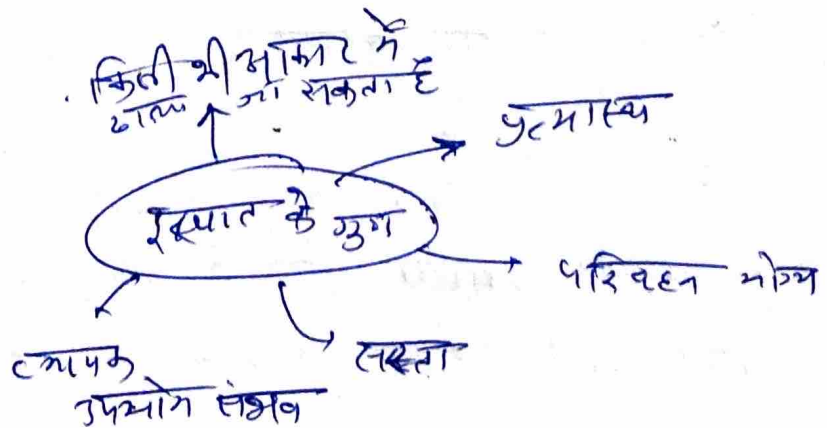 किसी भी आकार में
ढाला जा सकता है
प्रत्यास्थ
इस्पात के गुण
परिवहन योग्य
सस्ता
व्यापक
उपयोग संभव